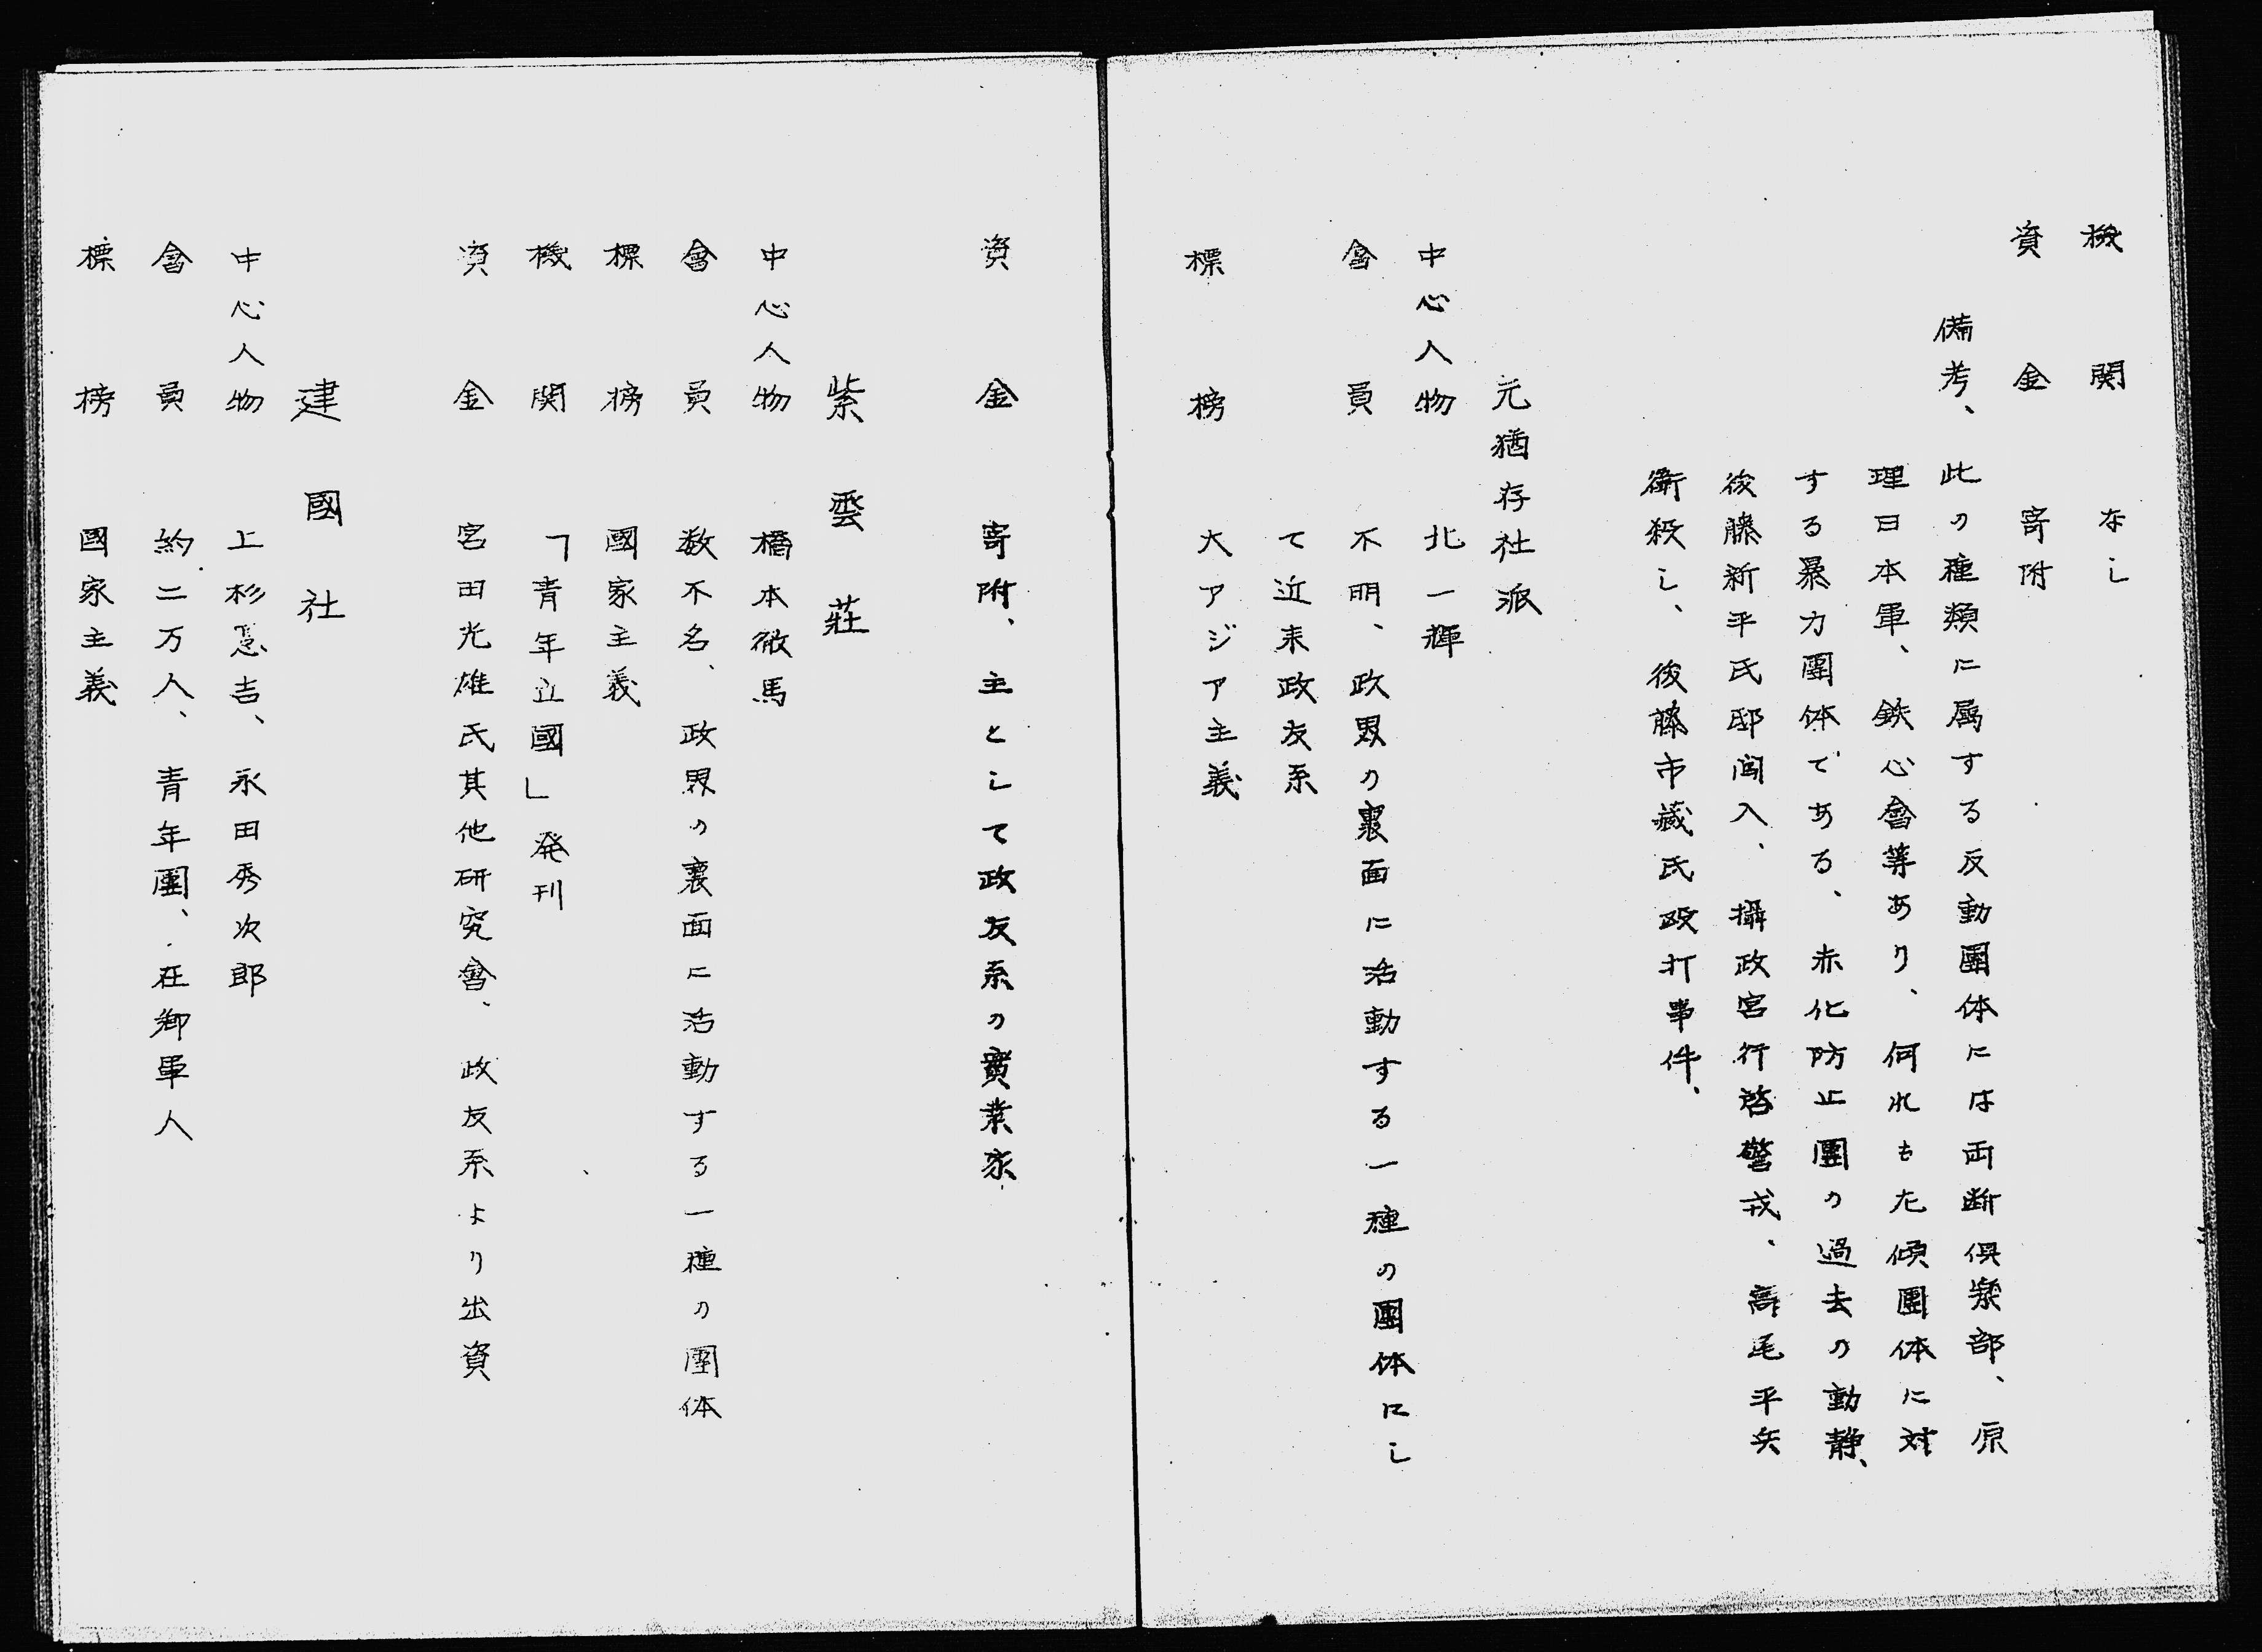 機関　なし
資金　寄附
備考、此の種類に属する反動團体には両断倶楽部、原
理日本軍、鉄心會等あり、何れも左傾團体に対
する暴力團体である、赤化防止團の過去の動静、
後藤新平氏邸闖入、攝政宮行啓警戒、高尾平兵
衛殺し、後藤市蔵氏殴打事件、
元猶存社派
中心人物　北一輝
會員　不明、政界の裏面に活動する一種の團体にし
て近来政友系
標榜　大アジア主義
資金　寄附、主として政友系の實業家
紫雲荘
中心人物　橋本徹馬
會員　数不名、政界の裏面に活動する一種の團体
標榜　國家主義
機関　「青年立國」発刊
資金　宮田光雄氏其他研究會、政友系より出資
建國社
中心人物　上杉愼吉、永田秀次郎
會員　約二万人、青年團、在郷軍人
標榜　國家主義